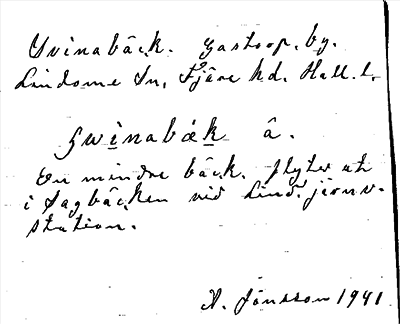 Svinabäck. Gastorp. by.
Lindome Sn, Fjäre hd. Hall. l.
swìnabæk â.
En mindre bäck. flyter ut
i Sagbäcken vid Lind. järnv.
station.
A. Jönsson 1941